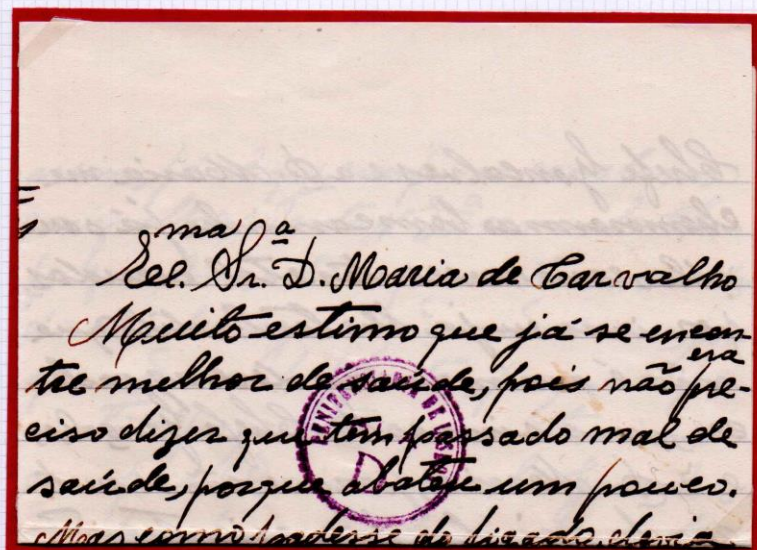 Exma Sr.ª D. Maria de Carvalho
Muito estimo que já se encon-
tre melhor de saúde, pois não era pre-
ciso dizer que tem passado mal de
saúde, porque abateu um pouco.
Mas como padesse do figado, devia
PENITENCIARIA DE LISBOA